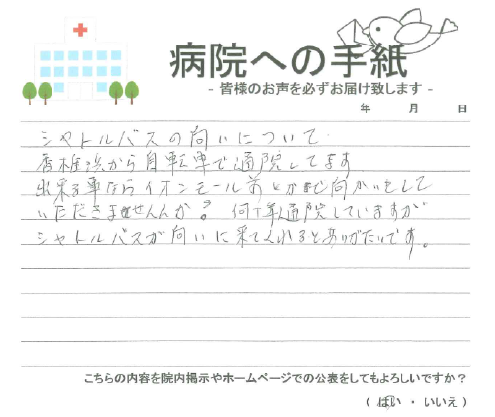 病院への手紙
- 皆様のお声を必ずお届け致します -
年 月 日
シャトルバスの向いについて
香椎浜から自転車で通院してます
出来る事ならイオンモール前とかまで向かいをして
いただきませんか? 何十年通院していますが
シャトルバスが向いに来てくれるとありがたいです。
こちらの内容を院内掲示やホームページでの公表をしてもよろしいですか?
( はい ・ いいえ )